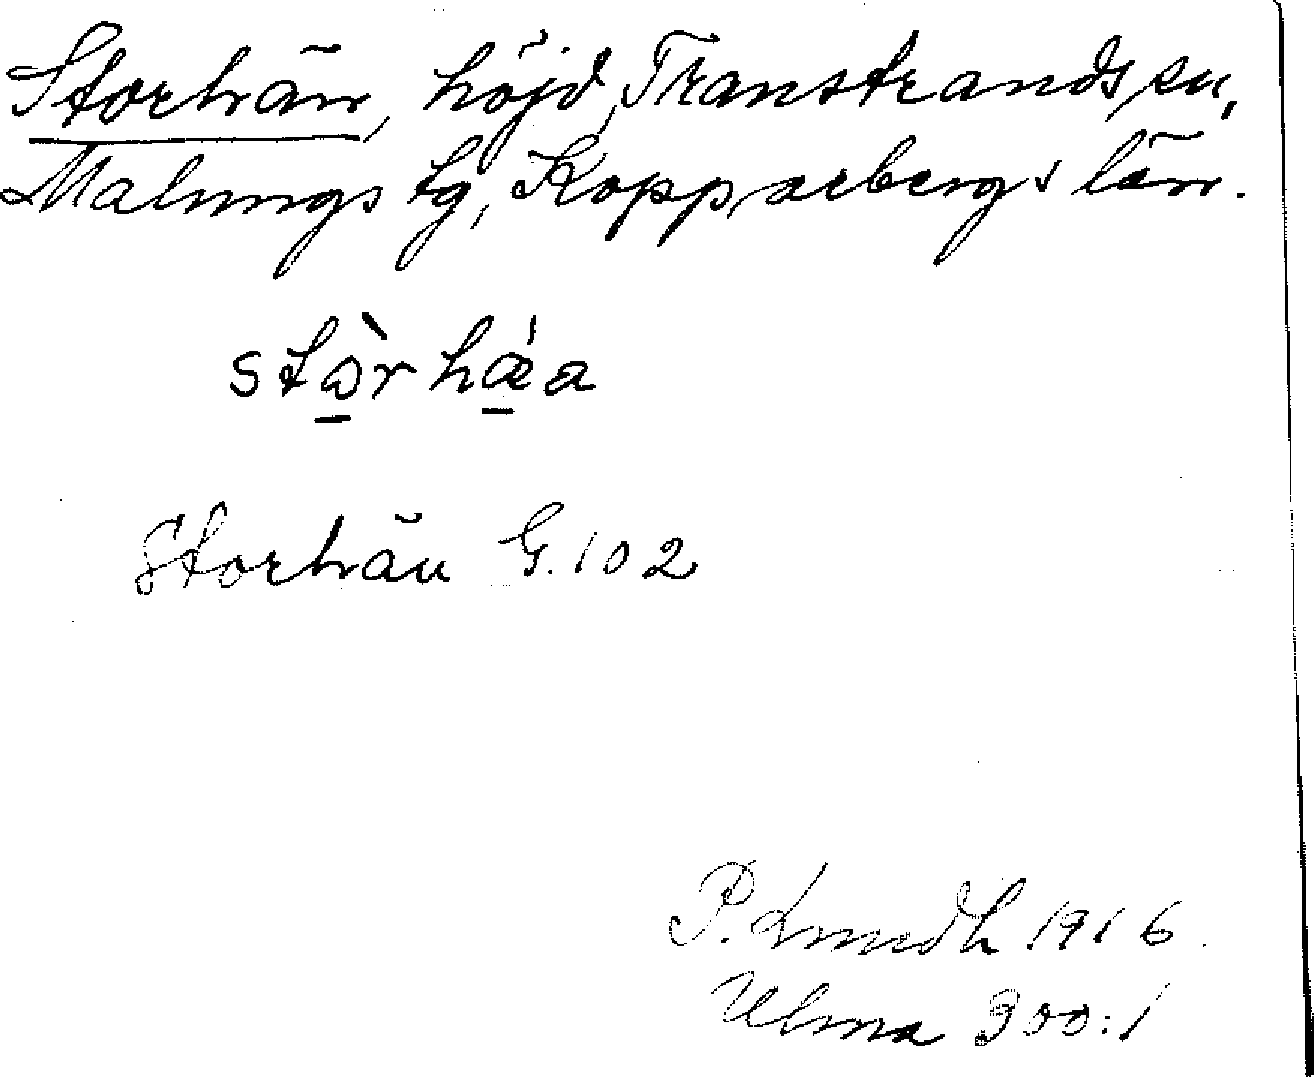 Storhän, höjd, Transtrands sn,
Malungs tg, Kopparbergs län.
stɷ̀rhǽa
Storhän G. 102
P. Lundh 1916.
Ulma 300:1